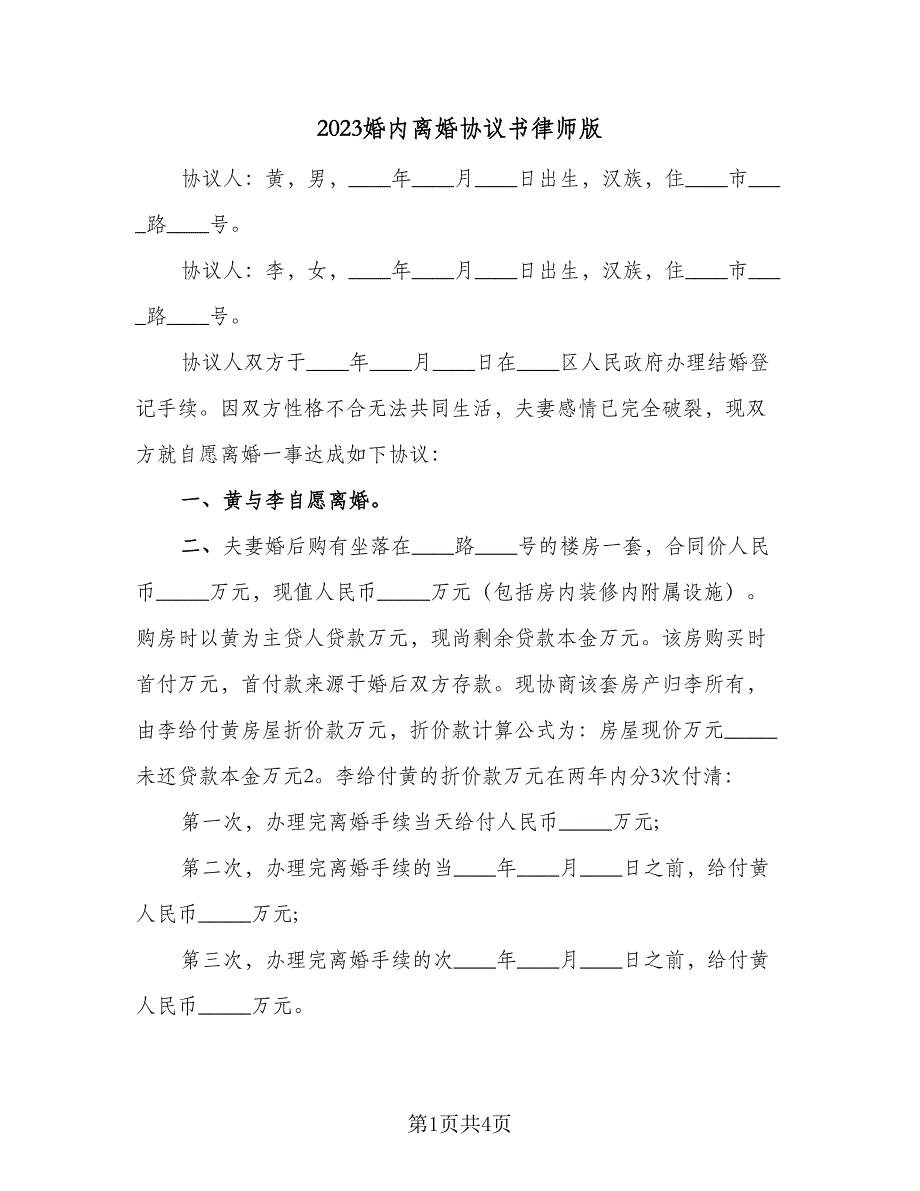 2023婚内离婚协议书律师版
协议人：黄，男，____年____月____日出生，汉族，住____市___
_路____号。
协议人：李，女，____年____月____日出生，汉族，住____市___
_路____号。
协议人双方于____年____月____日在____区人民政府办理结婚登
记手续。因双方性格不合无法共同生活，夫妻感情已完全破裂，现双
方就自愿离婚一事达成如下协议：
一、黄与李自愿离婚。
二、夫妻婚后购有坐落在____路____号的楼房一套，合同价人民
币_____万元，现值人民币_____万元（包括房内装修内附属设施）。
购房时以黄为主贷人贷款万元，现尚剩余贷款本金万元。该房购买时
首付万元，首付款来源于婚后双方存款。现协商该套房产归李所有，
由李给付黄房屋折价款万元，折价款计算公式为：房屋现价万元_____
未还贷款本金万元2。李给付黄的折价款万元在两年内分3次付清：
第一次，办理完离婚手续当天给付人民币_____万元;
第二次，办理完离婚手续的当____年____月____日之前，给付黄
人民币_____万元;
第三次，办理完离婚手续的次____年____月____日之前，给付黄
人民币_____万元。
第1页共4页